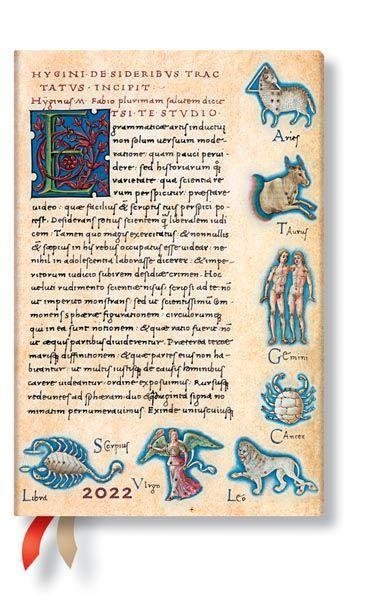 HYGINI · DE SIDERIBVS TRAC
TATVS · INCIPIT
Hyginus · M · Fabio plurimam salutem dicit
ETSI · TE · STVDIO ·
grammaticae artis inductu
non solum uersuum mode-
ratione: quam pauci perui-
dere: sed historiarum q
uarietate: qua scientia re
rum perspicitur: praestare
uideo: quae facilius & scriptis tuis perspici po-
test. Desiderans potius scientem q liberalem iudi
cem: Tamen quo magis exercitatus: & nonnullis
& saepius in his rebus occupatus esse uidear: ne
nihil in adolescentia laborasse dicerer: & impe-
ritorum iudicio subirem desidiae crimen: Hoc
ueluti rudimento scientiae nisus: scripsi ad te: nō
ut imperito monstrans: sed ut scientissimū cōm-
monens: sphaerae figurationem: circulorumq
qui in ea sunt notionem: & quae ratio fuerit: nō
ut aequis partibus diuiderentur. Praeterea terrae
marisq diffinitionem: & quae partes eius non ha-
bitantur: ut multis iustisq de causis hominibus
carere uideantur: ordine exposuimus. Rursusq
redeuntes ad sphaeram: duo & quadraginta signa no
minatim pernumerauimus. Exinde uniuscuiusq
Aries
Taurus
Gemini
Cancer
Leo
VIrgo
Scorpius
Libra
2022